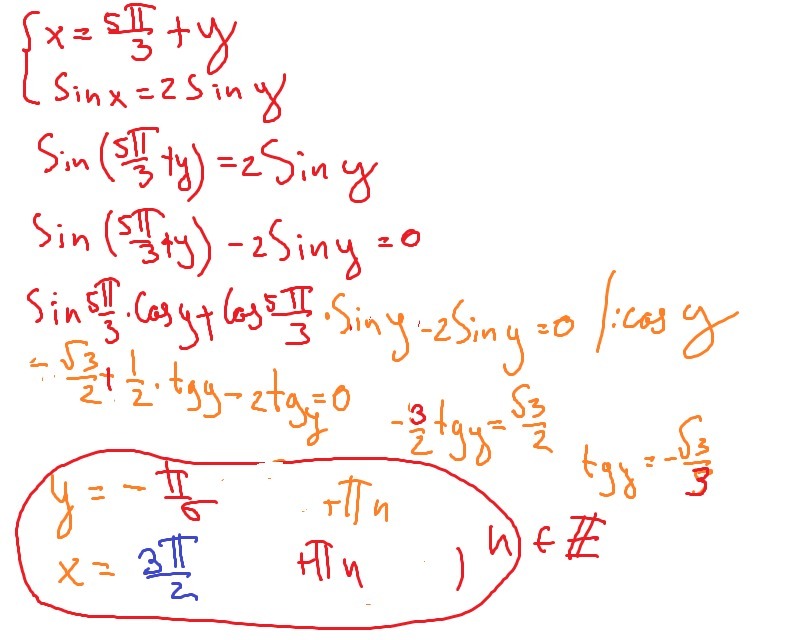 { x = 5π/3 + y
Sin x = 2 Sin y
Sin (5π/3 + y) = 2 Sin y
Sin (5π/3 + y) - 2 Sin y = 0
Sin 5π/3 · Cos y + Cos 5π/3 · Sin y - 2 Sin y = 0 /: cos y
- √3/2 + 1/2 · tg y - 2 tg y = 0
- 3/2 tg y = √3/2
tg y = - √3/3
y = - π/6 + πn
x = 3π/2 + πn , n ∈ Z